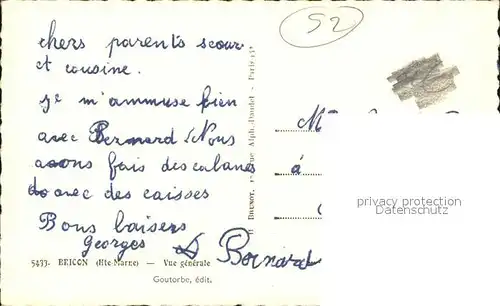 chers parents soeur
et cousine.
je m'ammuse bien
avec Bernard. Nous
avons fais des cabanes
avec des caisses
Bons baisers
Georges Bernard
5433- BRICON (Hte-Marne) — Vue générale
Goutorbe, édit.
Alph.-Daudet - Paris
52
M
à
privacy protection
Datenschutz